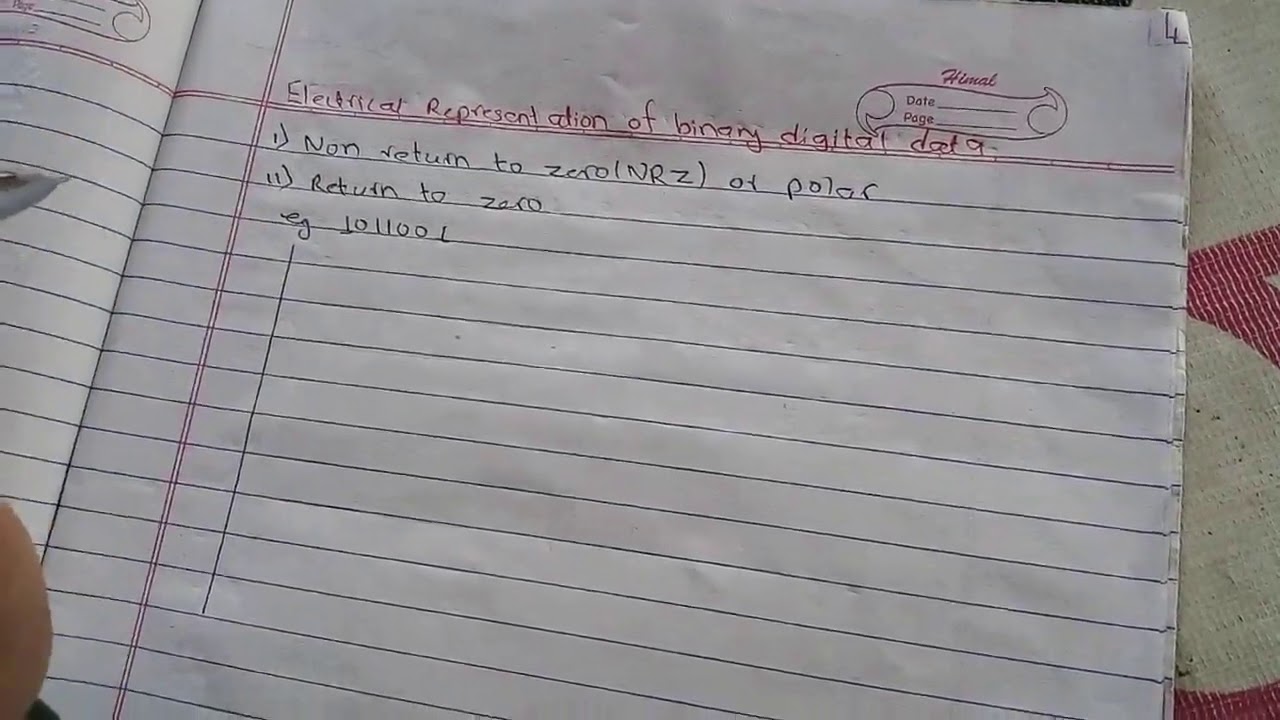 4
Himal
Date
Page
Electrical Representation of binary digital data.
i) Non return to zero(NRZ) or polar
ii) Return to zero
eg 1011001